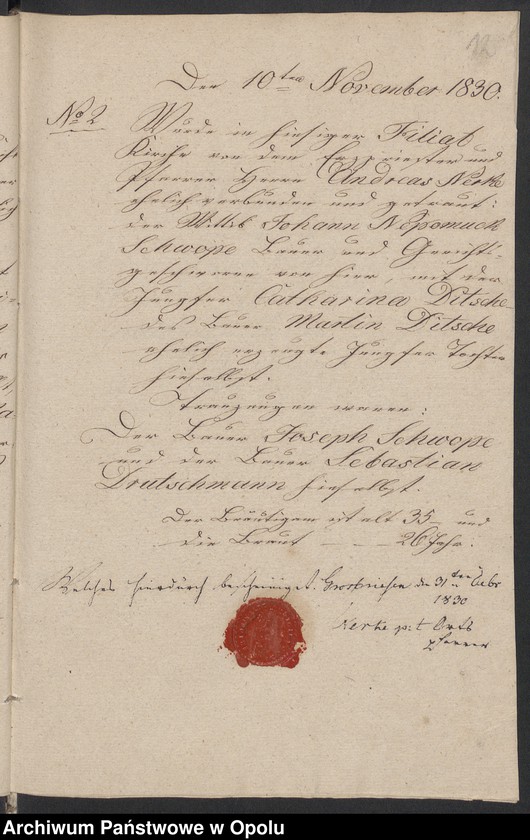 12
Den 10ten November 1830.
No 2
Wurde in hiesiger Filigl
Kirche von dem Erzpriester und
Pfarrer Herrn Andreas Nerke
ehelich verbunden und getraut:
der Wittib Johann Nepomuck
Schwope Bauer und Gerichts-
geschworne von hier, mit der
Jungfer Catharina Ditsche
des Bauer Martin Ditsche
ehelich erzeugte Jungfer Tochter
hieselbst.
Trauzeugen waren:
Der Bauer Joseph Schwope
und der Bauer Sebastian
Drutschmann hieselbst.
Der Bräutigam ist alt 35 und
die Braut — — 26 Jahr.
Welches hierdurch bescheiniget. den 31ten Xebr
1830
Nerke p: t Orts
pfarrer
Archiwum Państwowe w Opolu